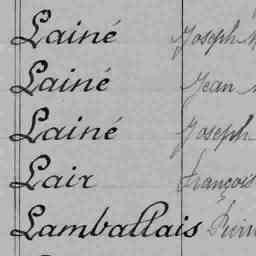 Lainé Joseph
Lainé Jean
Lainé Joseph
Lair François
Lamballais